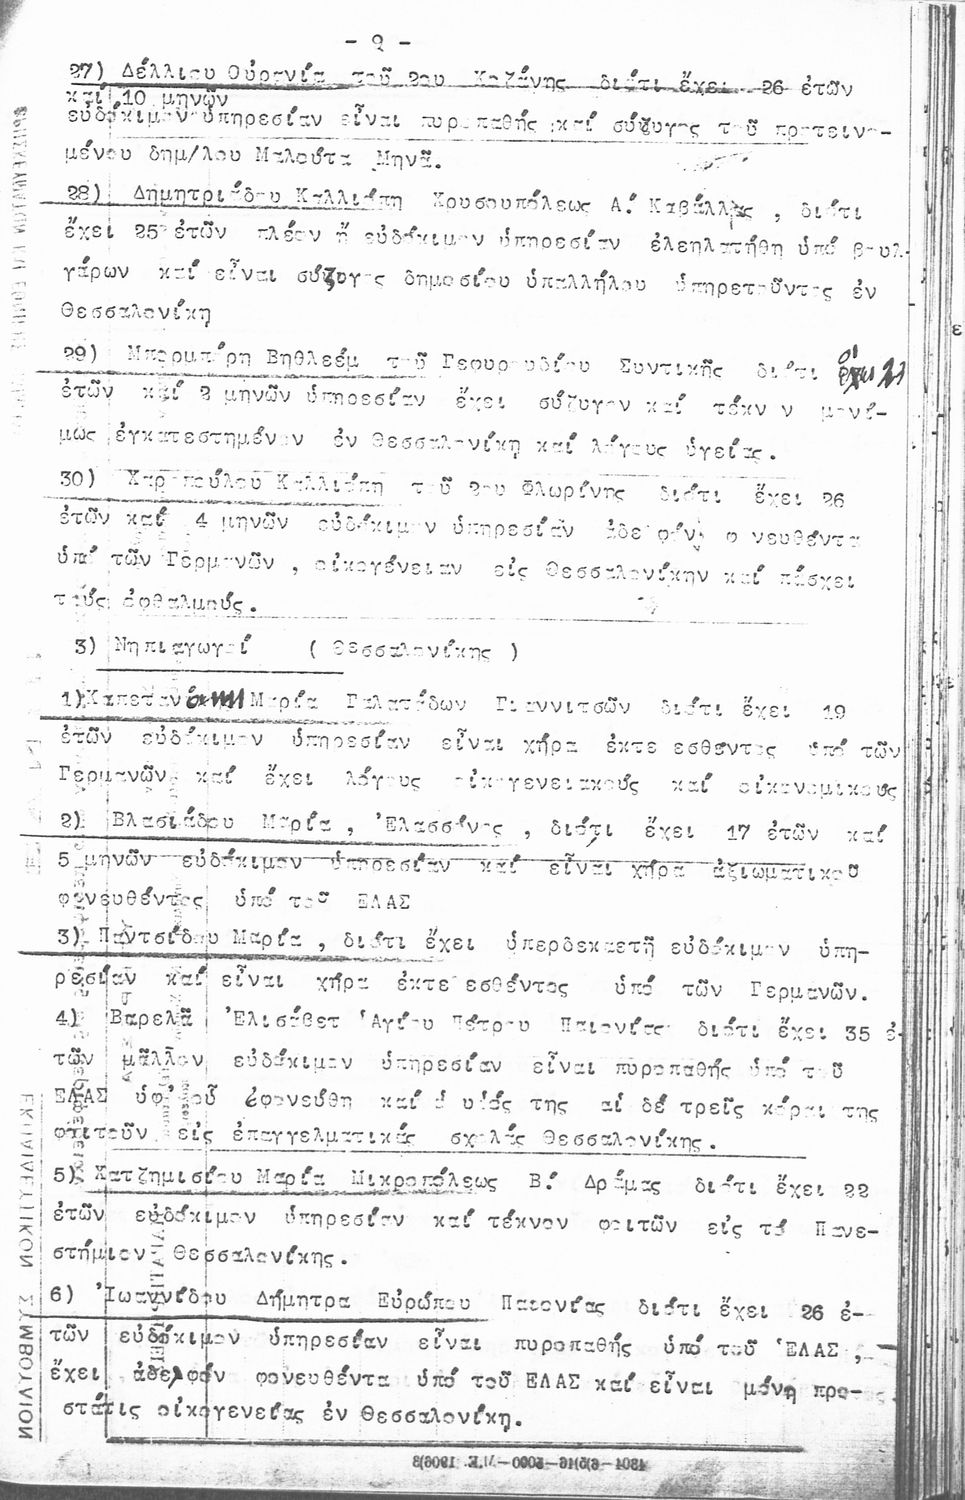 - 9 -
27) Δέλλιου Οὐρανία τοῦ 2ου Κοζάνης διότι ἔχει 26 ἐτῶν
καί 10 μηνῶν
εὐδόκιμον ὑπηρεσίαν εἶναι πυροπαθής καί σύζυγος τοῦ προτεινο-
μένου δημ/λου Μαλούτα Μηνᾶ.
28) Δημητριάδου Καλλιόπη Χρυσουπόλεως Α.΄ Καβάλλας , διότι
ἔχει 25 ἐτῶν πλέον ἤ εὐδόκιμον ὑπηρεσίαν ἐλεηλατήθη ὑπό βουλ-
γάρων καί εἶναι σύζυγος δημοσίου ὑπαλλήλου ὑπηρετοῦντος ἐν
Θεσσαλονίκη
29) Μπαρμπέρη Βηθλεέμ τοῦ Γεφυρουδίου Συντικῆς διότι ἔχει 21
ἐτῶν καί 2 μηνῶν ὑπηρεσίαν ἔχει σύζυγον καί τέκν ν μονί-
μως ἐγκατεστημένον ἐν Θεσσαλονίκη καί λόγους ὑγείας.
30) Χαροπούλου Καλλιόπη τοῦ 2ου Φλωρίνης διότι ἔχει 26
ἐτῶν καί 4 μηνῶν εὐδόκιμον ὑπηρεσίαν ἀδελφόν φονευθέντα
ὑπό τῶν Γερμανῶν , οἰκογένειαν εἰς Θεσσαλονίκην καί πάσχει
τούς ὀφθαλμούς.
3) Νηπιαγωγοί ( Θεσσαλονίκης )
1) Καπετανάκη Μαρία Γαλατάδων Γιαννιτσῶν διότι ἔχει 19
ἐτῶν εὐδόκιμον ὑπηρεσίαν εἶναι χήρα ἐκτελεσθέντος ὑπό τῶν
Γερμανῶν καί ἔχει λόγους οἰκογενειακούς καί οἰκονομικούς
2) Βλασιάδου Μαρία , Ἐλασσόνος , διότι ἔχει 17 ἐτῶν καί
5 μηνῶν εὐδόκιμον ὑπηρεσίαν καί εἶναι χήρα ἀξιωματικοῦ
φονευθέντος ὑπό τοῦ ΕΛΑΣ
3) Παντσίδου Μαρία , διότι ἔχει ὑπερδεκαετῆ εὐδόκιμον ὑπη-
ρεσίαν καί εἶναι χήρα ἐκτελεσθέντος ὑπό τῶν Γερμανῶν.
4) Βαρελᾶ Ἐλισάβετ Ἁγίου Πέτρου Παιονίας διότι ἔχει 35 ἐ-
τῶν μᾶλλον εὐδόκιμον ὑπηρεσίαν εἶναι πυροπαθής ὑπό τοῦ
ΕΛΑΣ ὑφ' οὗ ἐφονεύθη καί ὁ υἱός της αἱ δέ τρεῖς κόραι της
φοιτοῦν εἰς ἐπαγγελματικάς σχολάς Θεσσαλονίκης.
5) Χατζημισίου Μαρία Μικροπόλεως Β.΄ Δράμας διότι ἔχει 22
ἐτῶν εὐδόκιμον ὑπηρεσίαν καί τέκνον φοιτῶν εἰς τό Πανε-
στήμιον Θεσσαλονίκης.
6) Ἰωαννίδου Δήμητρα Εὐρώπου Παιονίας διότι ἔχει 26 ἐ-
τῶν εὐδόκιμον ὑπηρεσίαν εἶναι πυροπαθής ὑπό τοῦ ΕΛΑΣ ,
ἔχει ἀδελφόν φονευθέντα ὑπό τοῦ ΕΛΑΣ καί εἶναι μόνη προ-
στάτις οἰκογενείας ἐν Θεσσαλονίκη.
ΕΚΠΑΙΔΕΥΤΙΚΟΝ ΣΥΜΒΟΥΛΙΟΝ